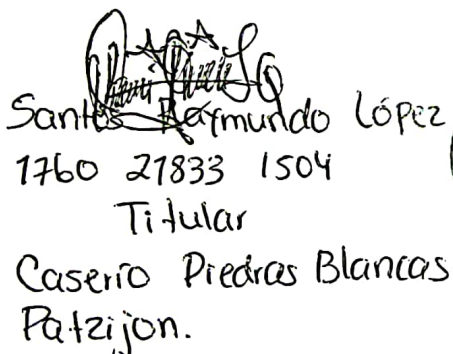 Santos Raymundo López
1760 27833 1504
Titular
Caserío Piedras Blancas
Patzijon.